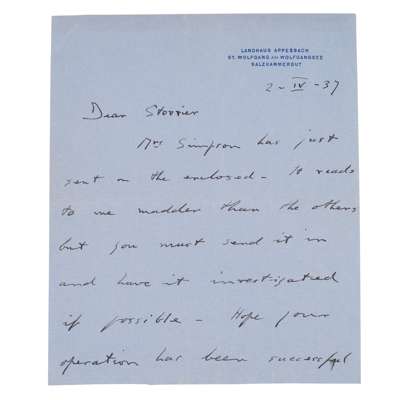 LANDHAUS APPESBACH
ST. WOLFGANG AM WOLFGANGSEE
SALZKAMMERGUT
2-IV-37
Dear Storrier
Mrs Simpson has just
sent on the enclosed - It reads
to me madder than the others
but you must send it in
and have it investigated
if possible - Hope your
operation has been successful